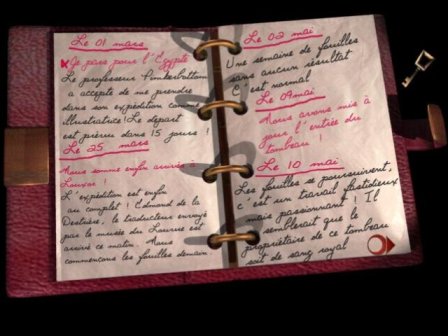 Le 01 mars
Je pars pour l'Egypte
Le professeur Limkerbottam
a accepté de me prendre
dans son expédition comme
illustratice ! Le départ
est prévu dans 15 jours !
Le 25 mars
Nous somme enfin arrivés à
Louxor !
L'expédition est enfin
au complet ! Edmond de la
Destrière, le traducteur envoyé
par le musée du Louvre est
arrivé ce matin. Nous
commençons les fouilles demain.
Le 02 mai
Une semaine de fouilles
sans aucun résultat
C'est normal
Le 09 mai
Nous avons mis à
jour l'entrée du
tombeau !
Le 10 mai
Les fouilles se poursuivent,
c'est un travail fastidieux
mais passionnant ! Il
semblerait que le
propriétaire de ce tombeau
soit de sang royal